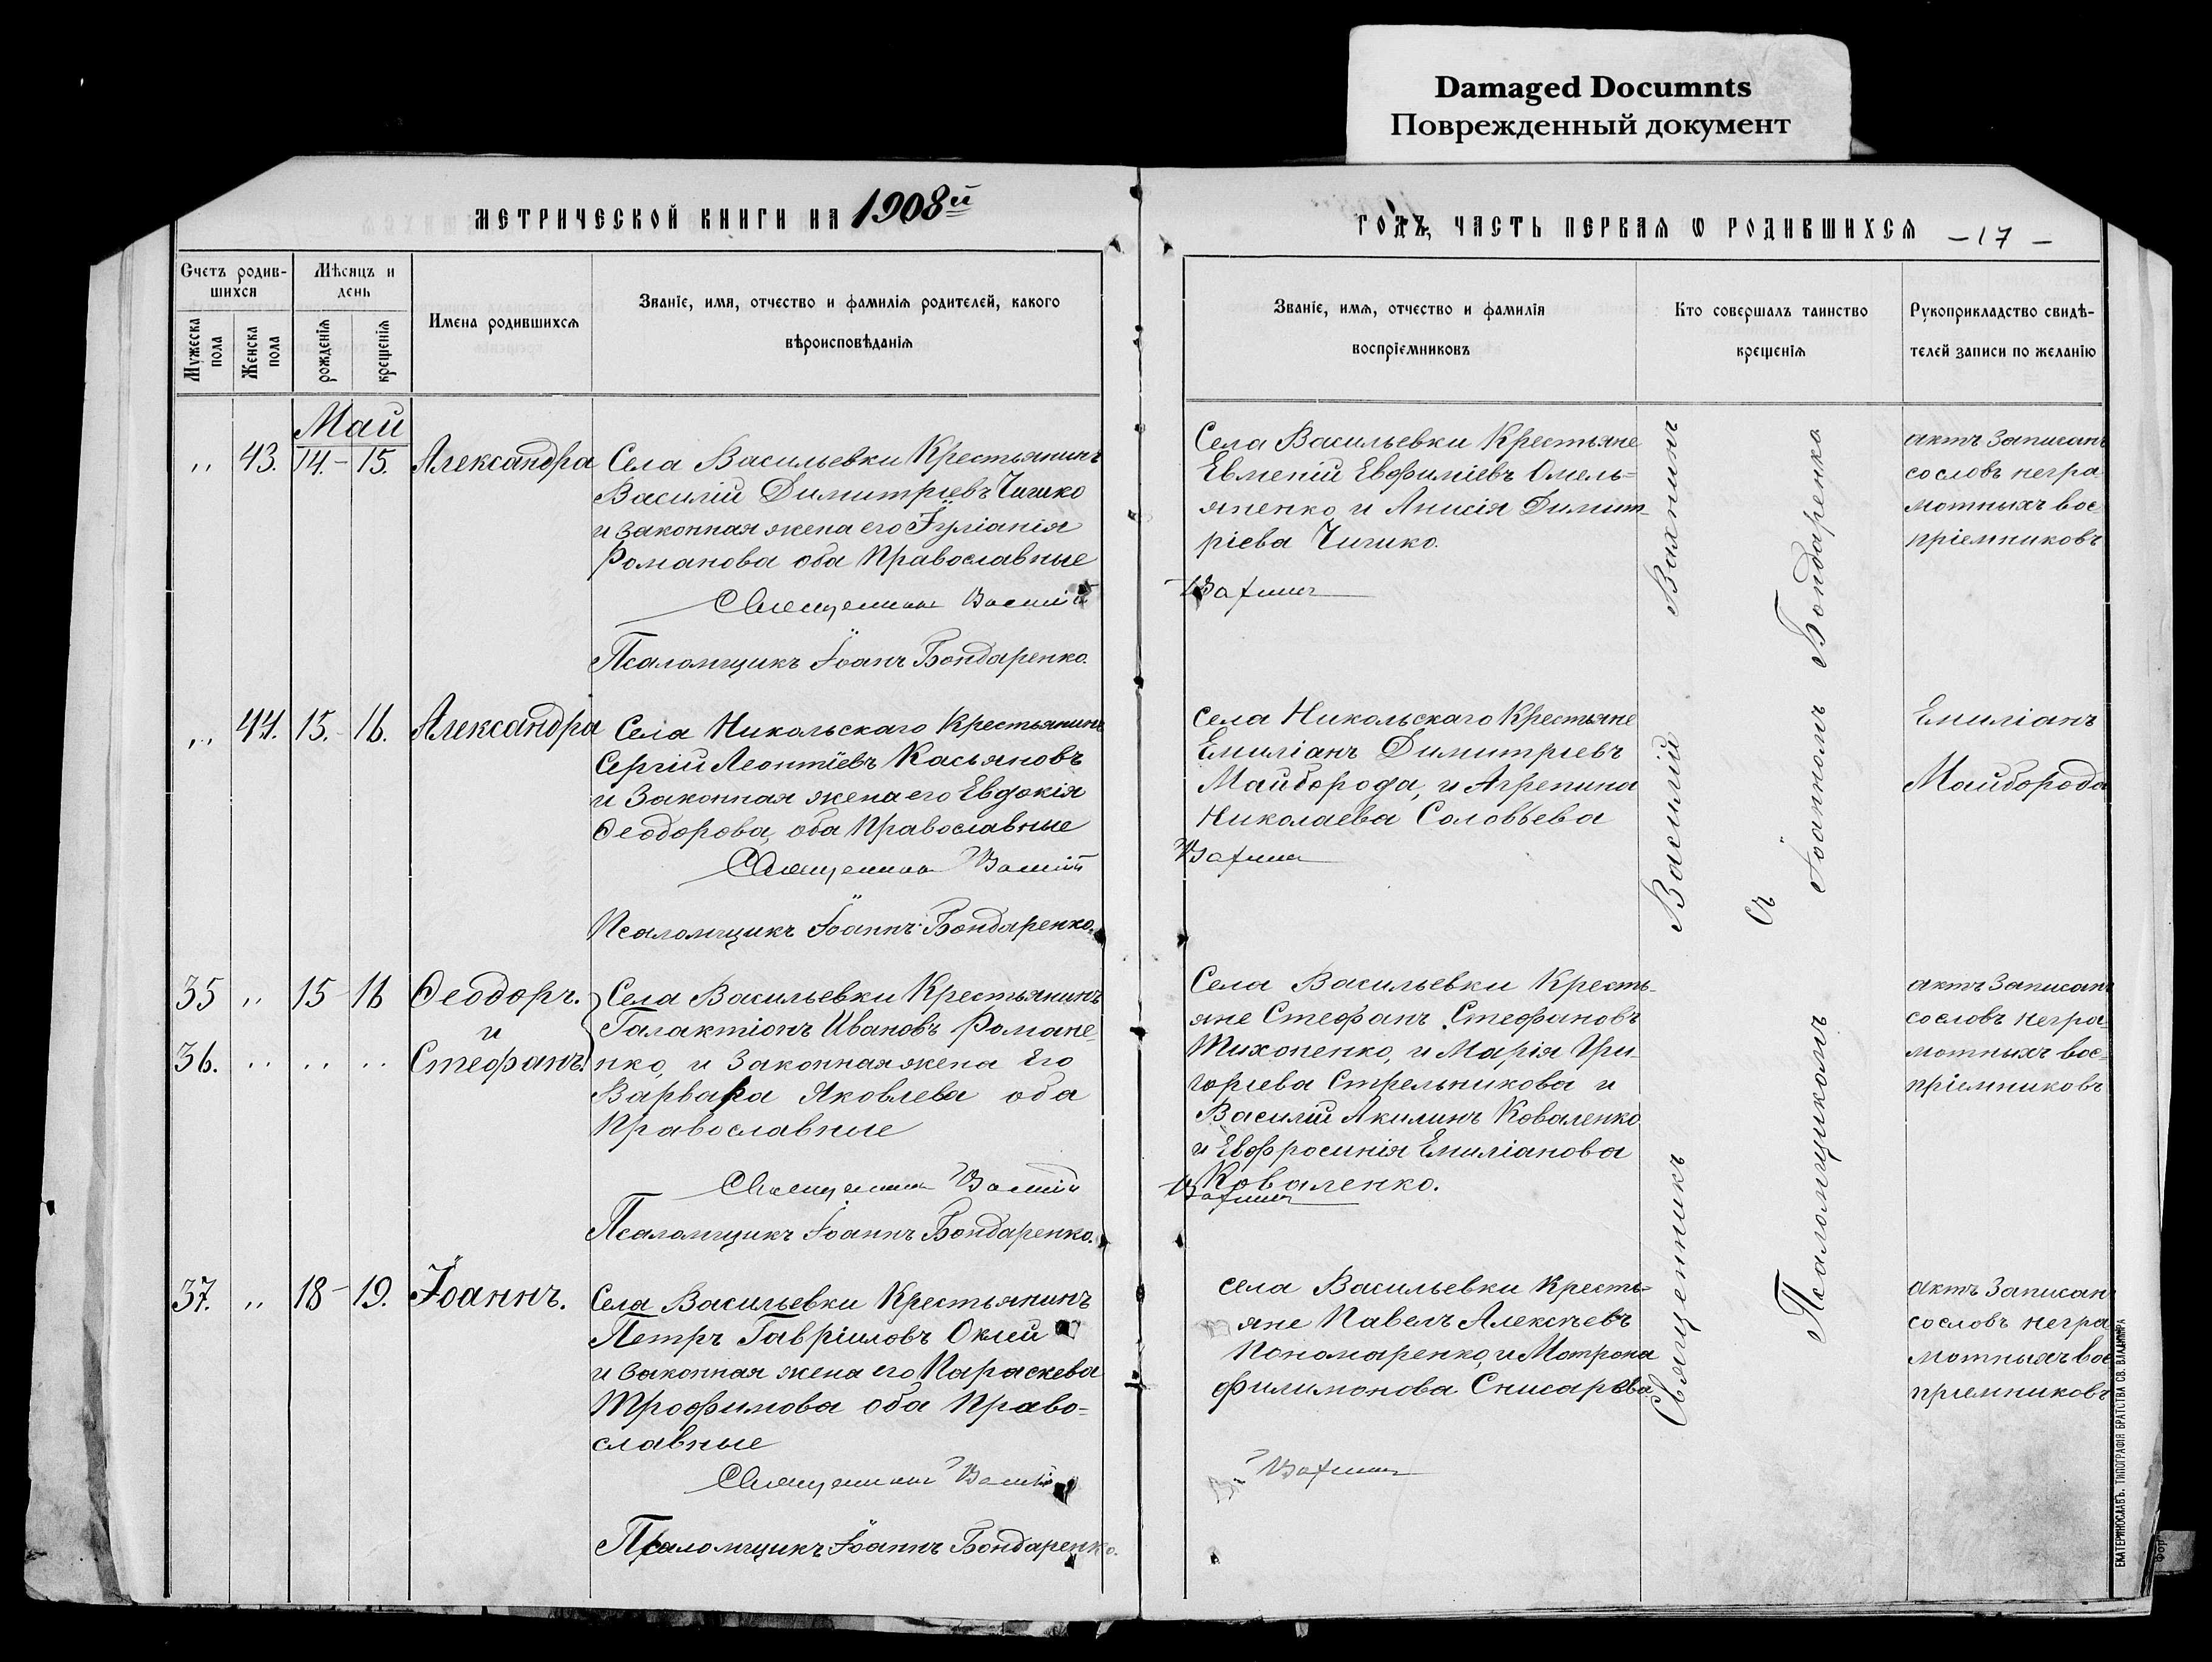 Damaged Documnts
Поврежденный документ
МЕТРИЧЕСКОЙ КНИГИ НА 1908й
ГОДЪ, ЧАСТЬ ПЕРВАЯ Ѡ РОДИВШИХСЯ
— 17 —
Счетъ родив-
шихся
Мѣсяцъ и
день
Мужеска
пола
Женска
пола
рожденія
крещенія
Имена родившихся
Званіе, имя, отчество и фамилія родителей, какого
вѣроисповѣданія
Званіе, имя, отчество и фамилія
воспріемниковъ
Кто совершалъ таинство
крещенія
Рукоприкладство свидѣ-
телей записи по желанію
Май
„ 43. 14.- 15. Александра
Села Васильевки Крестьянинъ
Василій Димитріевъ Чигико
и законная жена его Іуліанія
Романова оба Православные
Священникъ Василій
Псаломщикъ Іоанъ Бондаренко.
Села Васильевки Крестьяне
Евменій Евфиміевъ Омель=
яненко и Анисія Димит-
ріева Чигико.
Вахнин
актъ записанъ
сословъ негра
мотныхъ вос
пріемниковъ
„ 44. 15.- 16. Александра
Села Никольскаго Крестьянинъ
Сергій Леонтіевъ Касьяновъ
и Законная жена его Евдокія
Ѳеодорова, оба Православные
Священник Василій
Псаломщикъ Іоаннъ Бондаренко.
Села Никольскаго Крестьяне
Емиліанъ Димитріевъ
Майборода, и Агрепина
Николаева Соловьева
Вахнин
Емиліанъ
Майборода
35 „ 15 - 16 Ѳеодоръ.
и
36. „ „ „ Стефанъ.
Села Васильевки Крестьянинъ
Галактіонъ Ивановъ Романе-
нко, и Законная жена Его
Варвара Яковлева оба
Православные
Священник Василій
Псаломщикъ Іоаннъ Бондаренко.
Села Васильевки Кресть-
яне Стефанъ Стефановъ
Тихоненко, и Марія Гри-
горіева Стрельникова и
Василій Акилинъ Коваленко
и Евфросинія Емиліанова
Коваленко.
Вахнин
актъ Записанъ
сословъ негра=
мотныхъ вос=
пріемниковъ
37. „ 18 - 19. Іоаннъ.
Села Васильевки Крестьянинъ
Петръ Гавріиловъ Оклей
и Законная жена его Параскева
Трофимова оба Право=
славные
Священник Василій
Псаломщикъ Іоаннъ Бондаренко.
села Васильевки Кресть=
яне Павелъ Алексѣевъ
Пономаренко, и Матрона
Филимонова Снисарева
Вахнин
актъ Записан
сословъ негра
мотныхъ вос
пріемниковъ
Священникъ Василій Вахнинъ
съ
Псаломщикомъ Іоанномъ Бондаренко
ЕКАТЕРИНОСЛАВЪ. ТИПОГРАФІЯ БРАТСТВА СВ. ВЛАДИМІРА
Фор